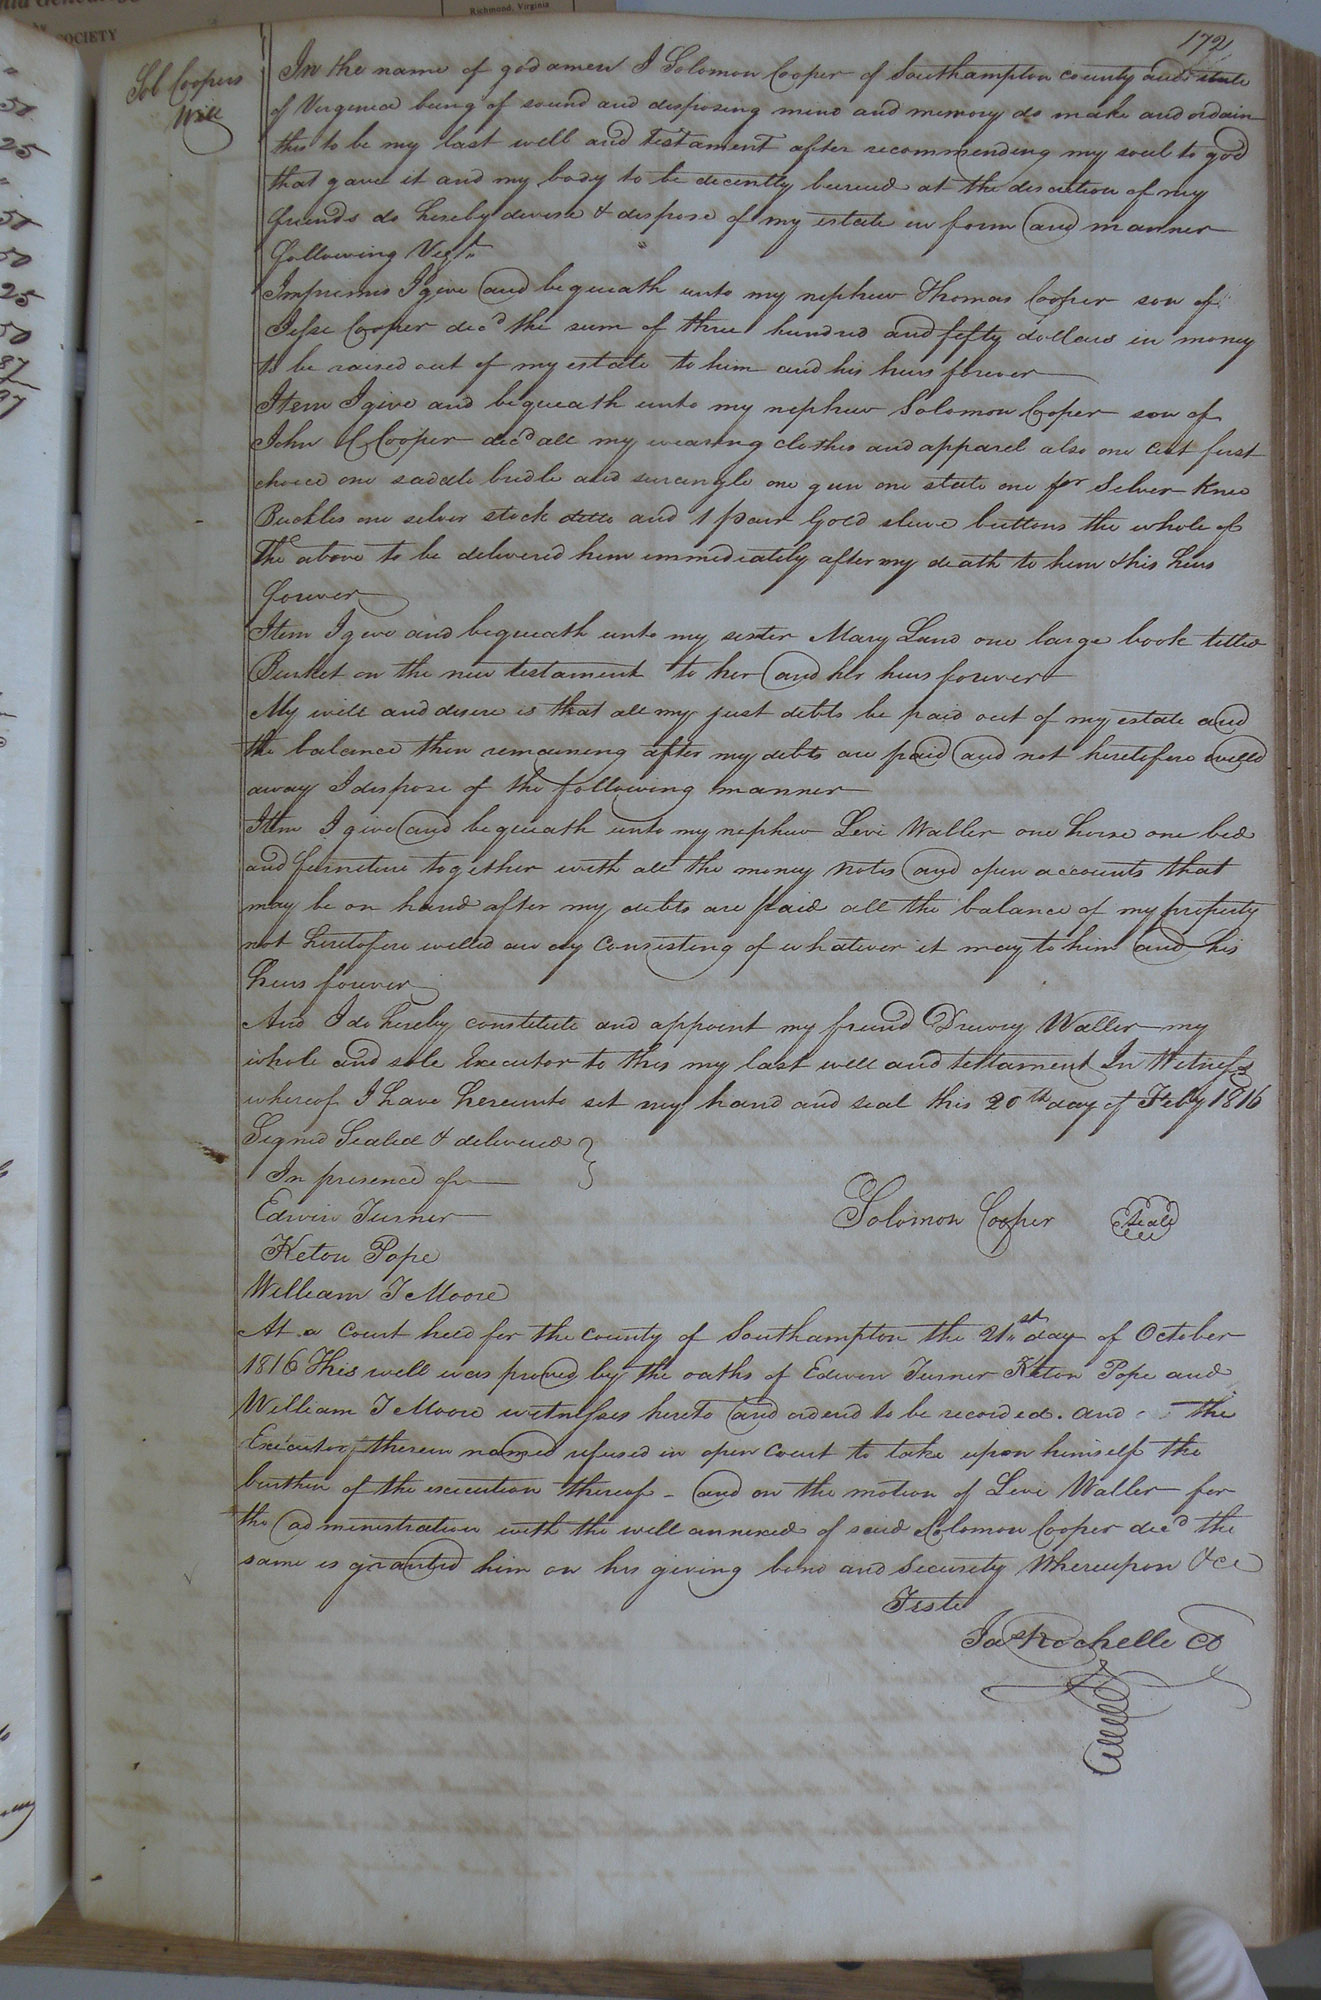 Richmond, Virginia
SOCIETY
172
Sol Coopers
Will
In the name of god amen I Solomon Cooper of Southampton county and state
of Virginia being of sound and disposing mind and memory do make and ordain
this to be my last will and testament after recommending my soul to god
that gave it and my body to be decently buried at the discretion of my
friends do hereby devise & dispose of my estate in form and manner
following Vizt
Imprimis I give and bequeath unto my nephew Thomas Cooper son of
Jesse Cooper decd the sum of three hundred and fifty dollars in money
to be raised out of my estate to him and his heirs forever
Item I give and bequeath unto my nephew Solomon Cooper son of
John C Cooper decd all my wearing clothes and apparel also one first
choice one saddle bridle and surcingle one gun one one pr Silver Knee
Buckles one silver stock ditto and 1 pair Gold sleeve buttons the whole of
the above to be delivered him immediately after my death to him & his heirs
forever
Item I give and bequeath unto my sister Mary Land one large book titled
Burket on the new testament to her and her heirs forever
My will and desire is that all my just debts be paid out of my estate and
the balance then remaining after my debts are paid and not heretofore willed
away I dispose of the following manner
Item I give and bequeath unto my nephew Levi Waller one horse one bed
and furniture together with all the money notes and open accounts that
may be on hand after my debts are paid all the balance of my property
not heretofore willed away consisting of whatever it may to him and his
heirs forever
And I do hereby constitute and appoint my friend Drewry Waller my
whole and sole Executor to this my last will and testament In Witness
whereof I have hereunto set my hand and seal this 20th day of Feby 1816
Signed Sealed & delivered
In presence of
Edwin Turner
Solomon Cooper Seal
Keton Pope
William T Moore
At a Court held for the county of Southampton the 21st day of October
1816 This will was proved by the oaths of Edwin Turner Keton Pope and
William T Moore witnesses hereto and orderd to be recorded. and the
Executor therein named refused in open Court to take upon himself the
burthen of the execution thereof - and on the motion of Levi Waller for
the administration with the will annexed of said Solomon Cooper decd the
same is granted him on his giving bond and Security Whereupon &ce
Teste
Jas Rochelle CC